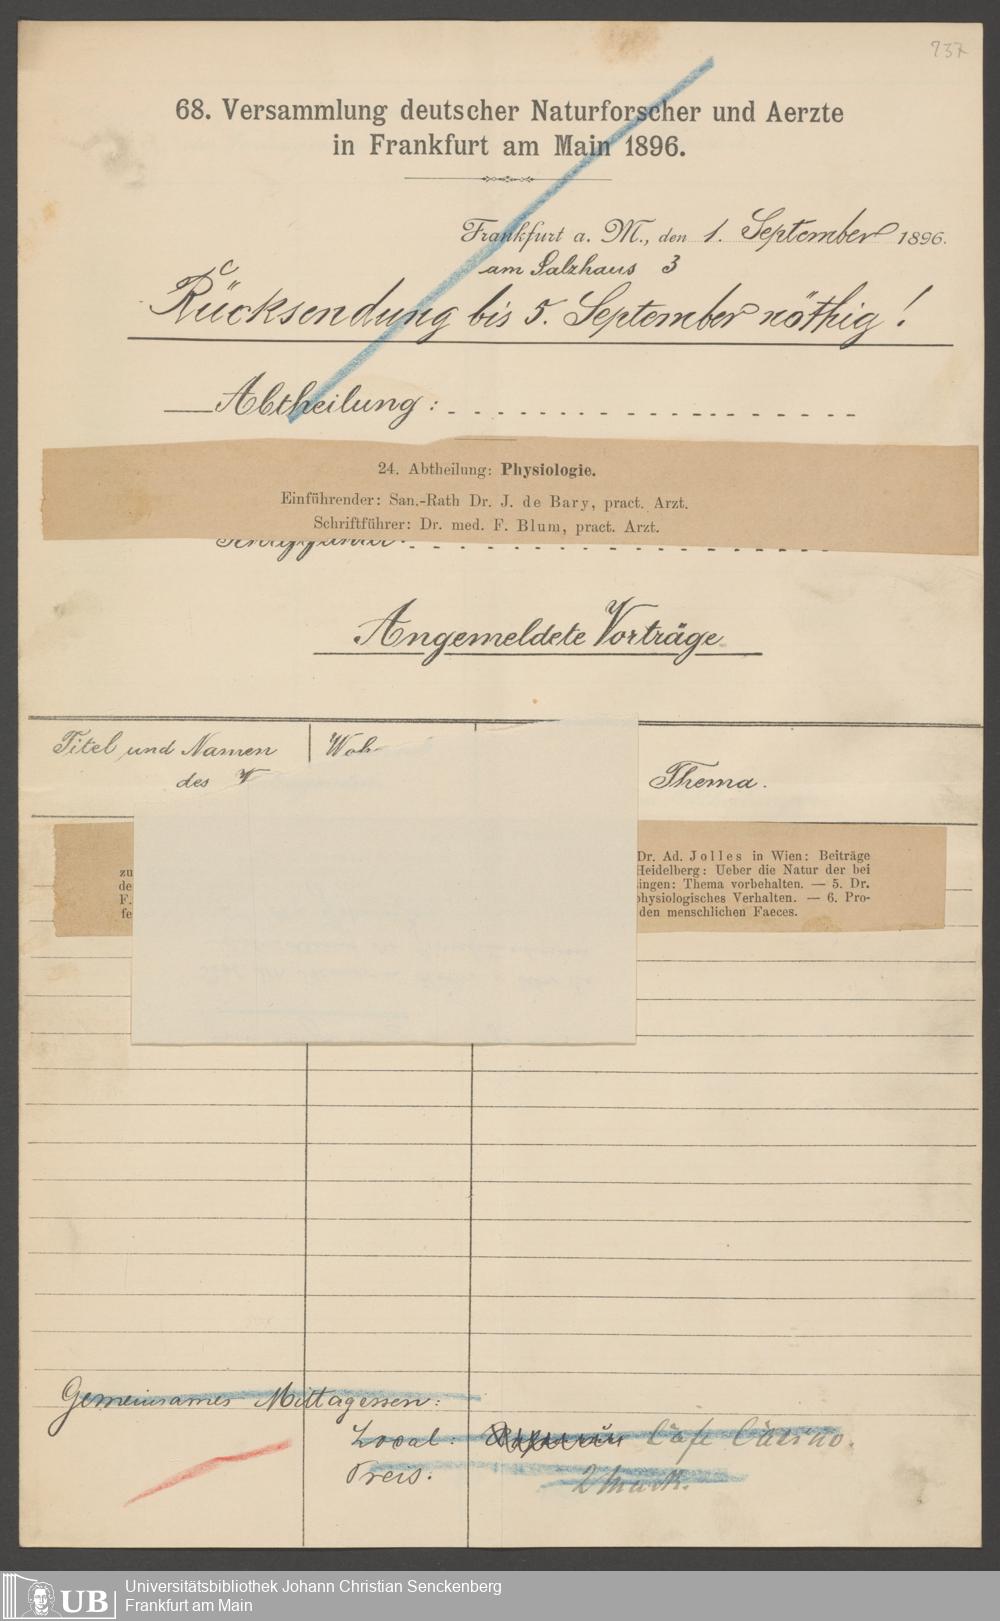 237
68. Versammlung deutscher Naturforscher und Aerzte
in Frankfurt am Main 1896.
Frankfurt a. M., den 1. September 1896.
am Salzhaus 3
Rücksendung bis 5. September nöthig!
Abtheilung:
24. Abtheilung: Physiologie.
Einführender: San.-Rath Dr. J. de Bary, pract. Arzt.
Schriftführer: Dr. med. F. Blum, pract. Arzt.
Angemeldete Vorträge
Titel und Namen
des V
Woh
Thema.
zu
de
F.
fe
Dr. Ad. Jolles in Wien: Beiträge
Heidelberg: Ueber die Natur der bei
ingen: Thema vorbehalten. — 5. Dr.
physiologisches Verhalten. — 6. Pro-
den menschlichen Faeces.
Gemeinsames Mittagessen:
Local: Café Casino.
Preis. 2 Mark.
UB
Universitätsbibliothek Johann Christian Senckenberg
Frankfurt am Main